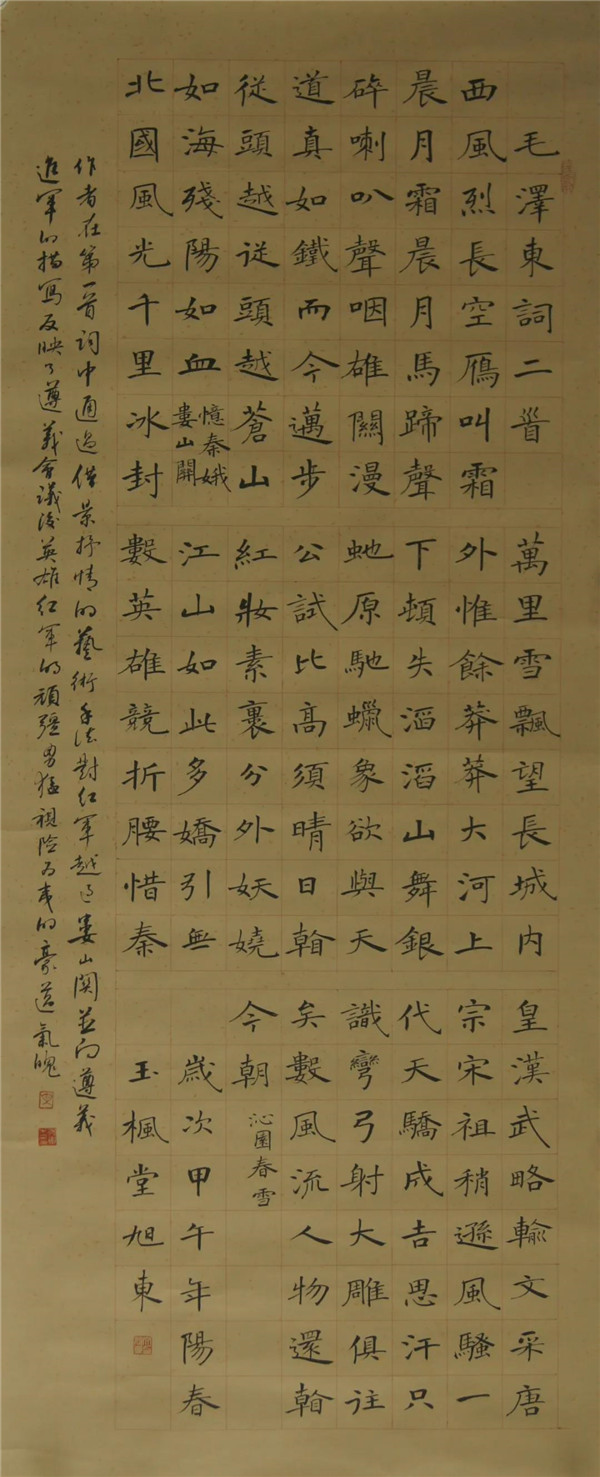 毛澤東詞二首
西風烈長空鴈叫霜
晨月霜晨月馬蹄聲
碎喇叭聲咽雄關漫
道真如鐵而今邁步
從頭越從頭越蒼山
如海殘陽如血
憶秦娥
婁山關
北國風光千里冰封
萬里雪飄望長城内
外惟餘莽莽大河上
下頓失滔滔山舞銀
虵原馳蠟象欲與天
公試比高須晴日看
紅妝素裹分外妖嬈
江山如此多嬌引無
數英雄競折腰惜秦
皇漢武略輸文采唐
宗宋祖稍遜風騷一
代天驕成吉思汗只
識彎弓射大雕俱往
矣數風流人物還看
今朝
沁園春雪
歲次甲午年陽春
玉楓堂旭東
作者在第一首詞中通過借景抒情的藝術手法對紅軍越過婁山關並向遵義
進軍的描寫反映了遵義會議後英雄紅軍的頑強勇猛視險為夷的豪邁氣魄